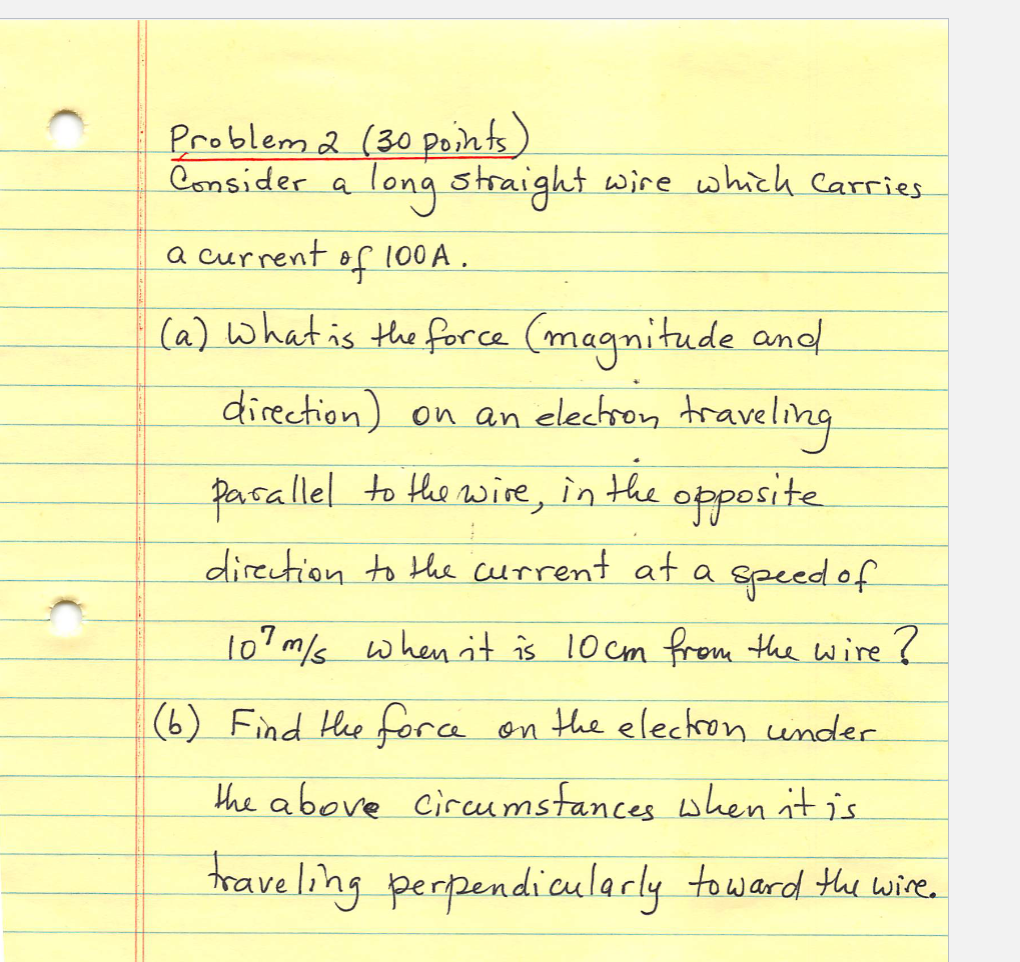 Problem 2 (30 points)
Consider a long straight wire which carries
a current of 100A.
(a) What is the force (magnitude and
direction) on an electron traveling
parallel to the wire, in the opposite
direction to the current at a speed of
10⁷ m/s when it is 10cm from the wire?
(b) Find the force on the electron under
the above circumstances when it is
traveling perpendicularly toward the wire.